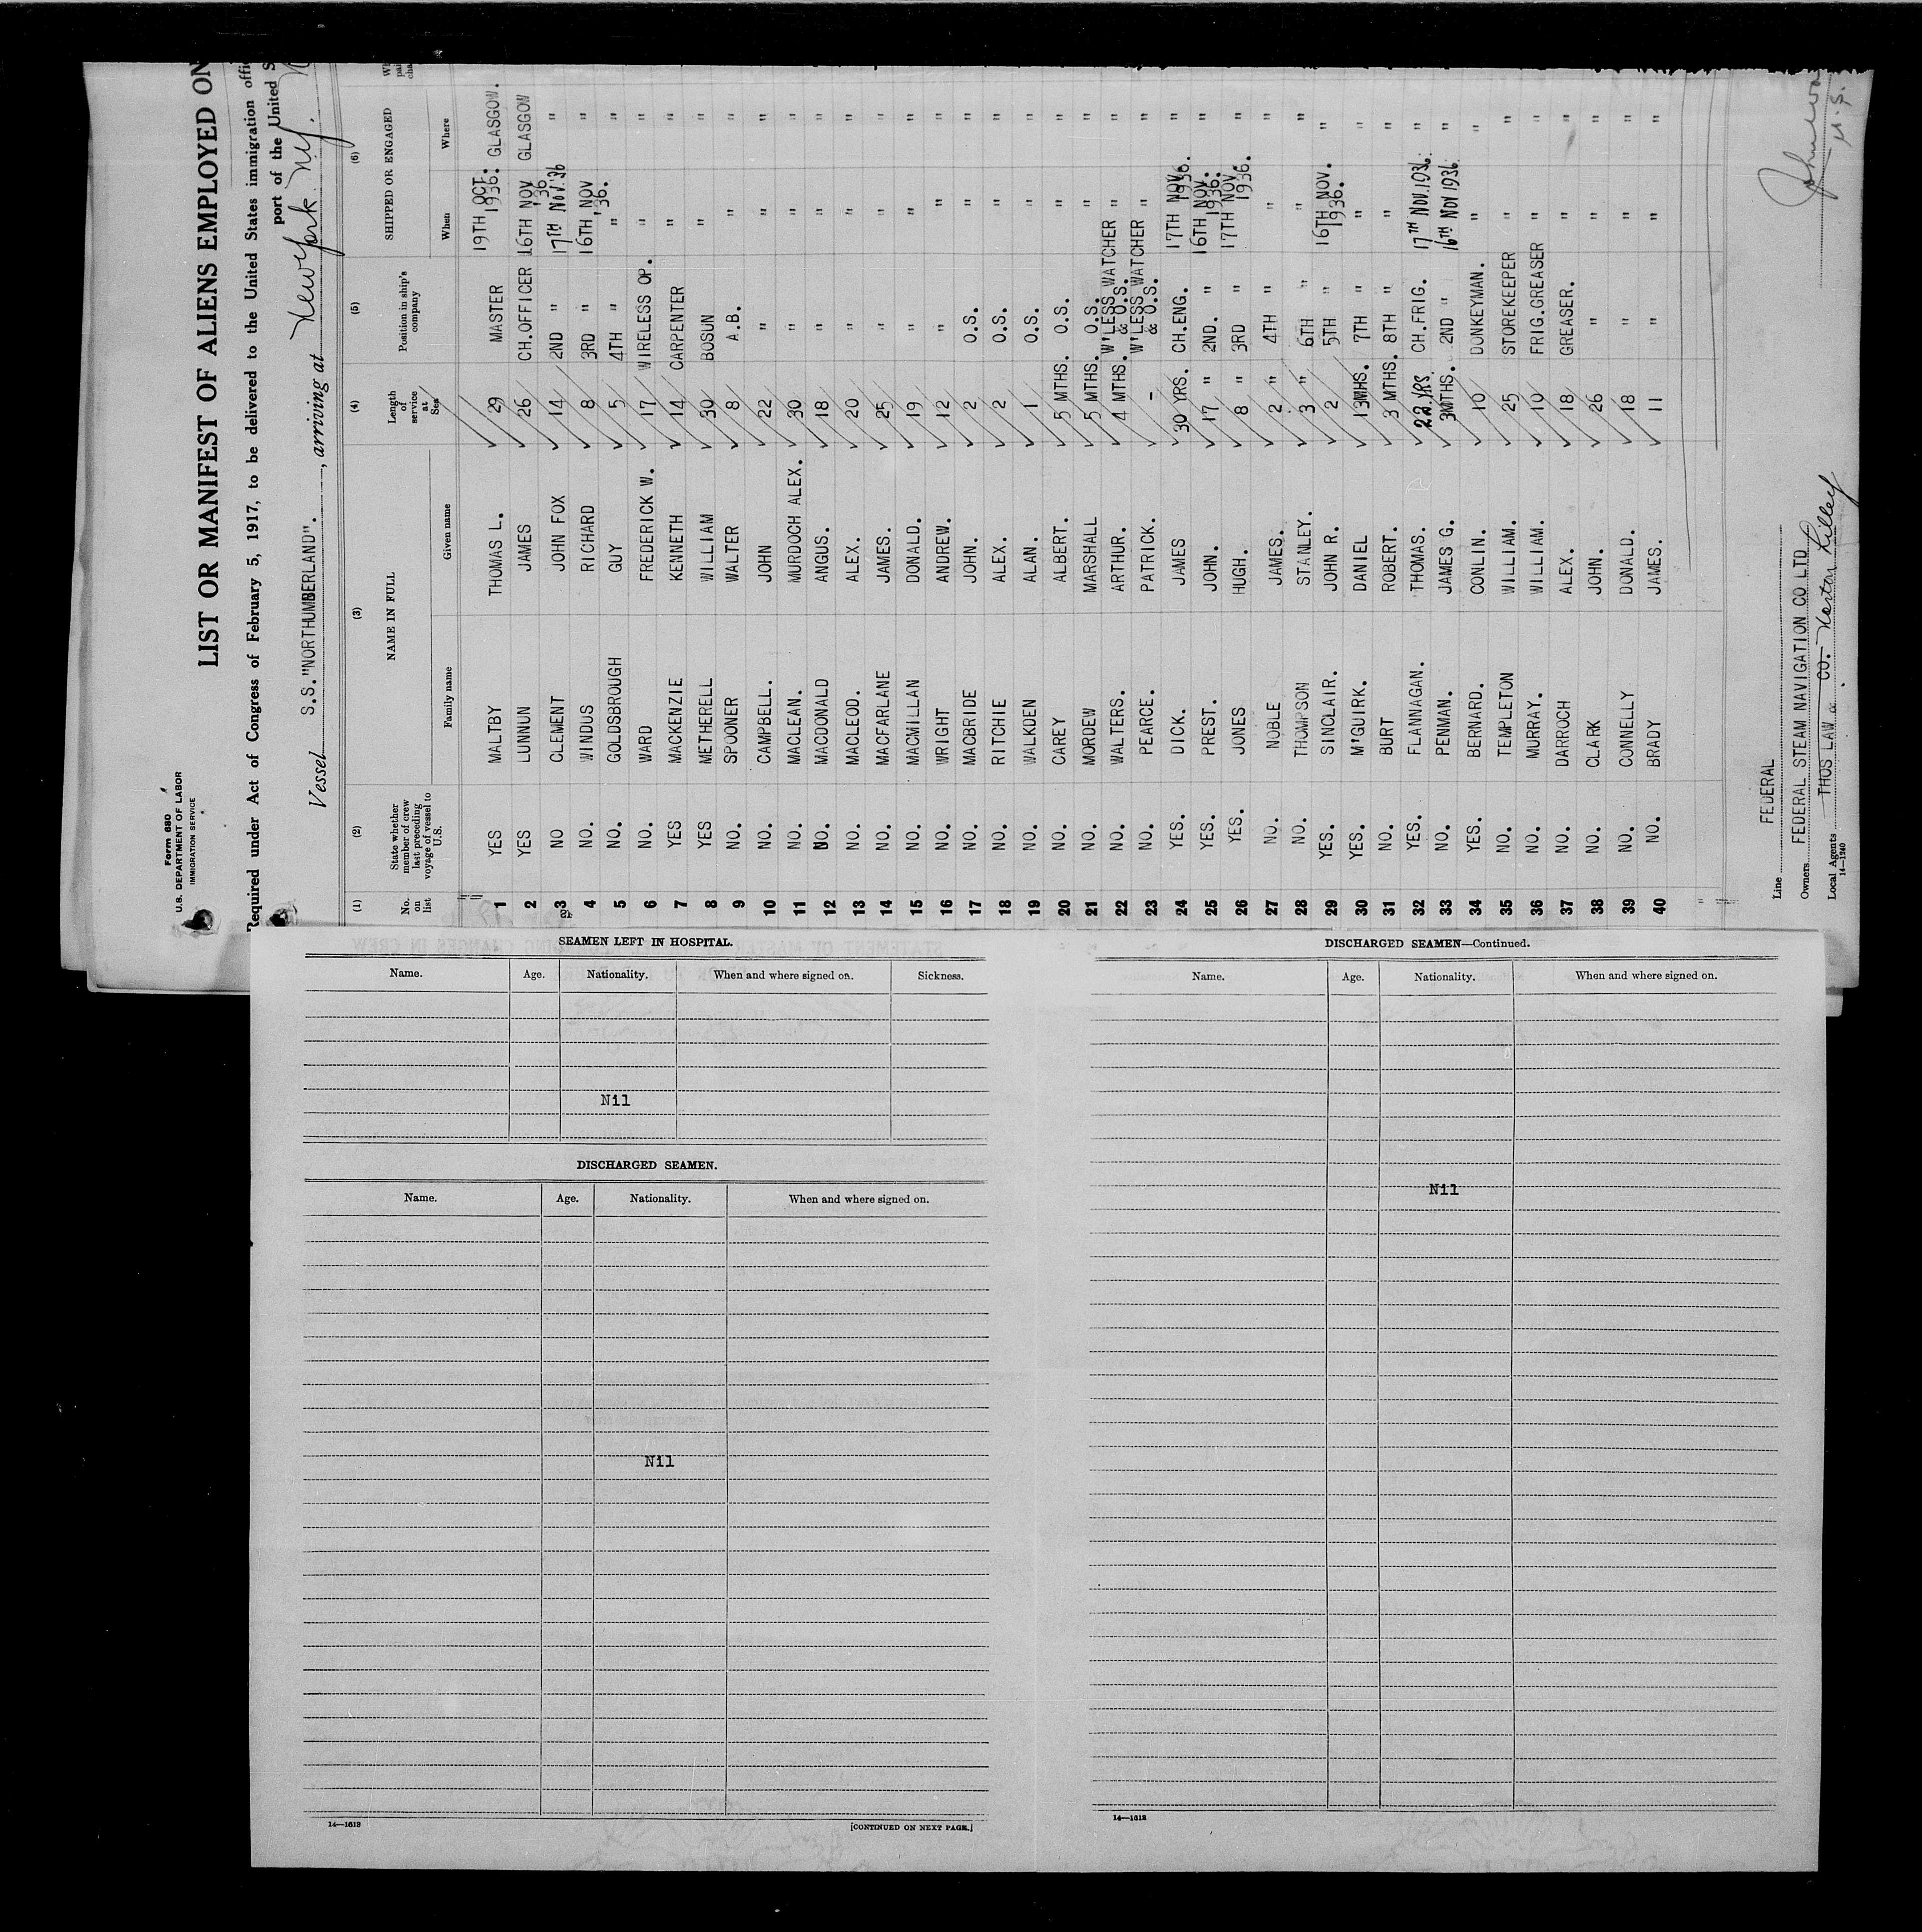 Form 680
U.S. DEPARTMENT OF LABOR
IMMIGRATION SERVICE
LIST OR MANIFEST OF ALIENS EMPLOYED ON
Required under Act of Congress of February 5, 1917, to be delivered to the United States immigration
port of the United
Vessel S.S. "NORTHUMBERLAND". , arriving at New York N.Y.
(1) (2) (3) (4) (5) (6)
No. on list State whether member of crew last preceding voyage of vessel to U.S. NAME IN FULL Length of service at Sea Position in ship's company SHIPPED OR ENGAGED
Family name Given name When Where
1 YES MALTBY THOMAS L. 29 MASTER 19TH OCT. 1936. GLASGOW.
2 YES LUNNUN JAMES 26 CH.OFFICER 16TH NOV '36 GLASGOW
3 NO CLEMENT JOHN FOX 14 2ND " 17TH NOV.'36 "
4 NO. WINDUS RICHARD 8 3RD " 16TH NOV '36. "
5 NO. GOLDSBROUGH GUY 5 4TH " " "
6 NO. WARD FREDERICK W. 17 WIRELESS OP. " "
7 YES MACKENZIE KENNETH 14 CARPENTER " "
8 YES METHERELL WILLIAM 30 BOSUN " "
9 NO. SPOONER WALTER 8 A.B. " "
10 NO. CAMPBELL. JOHN 22 " " "
11 NO. MACLEAN. MURDOCH ALEX. 30 " " "
12 NO. MACDONALD ANGUS. 18 " " "
13 NO. MACLEOD. ALEX. 20 " " "
14 NO. MACFARLANE JAMES. 25 " " "
15 NO. MACMILLAN DONALD. 19 " " "
16 NO. WRIGHT ANDREW. 12 " " "
17 NO. MACBRIDE JOHN. 2 O.S. " "
18 NO. RITCHIE ALEX. 2 O.S. " "
19 NO. WALKDEN ALAN. 1 O.S. " "
20 NO. CAREY ALBERT. 5 MTHS. O.S. " "
21 NO. MORDEW MARSHALL 5 MTHS. O.S. " "
22 NO. WALTERS. ARTHUR. 4 MTHS. W'LESS WATCHER & O.S. " "
23 NO. PEARCE. PATRICK. - W'LESS WATCHER & O.S. " "
24 YES. DICK. JAMES 30 YRS. CH.ENG. 17TH NOV. 1936. "
25 YES. PREST. JOHN. 17 " 2ND. " 16TH NOV. 1936. "
26 YES. JONES HUGH. 8 " 3RD " 17TH NOV 1936. "
27 NO. NOBLE JAMES. 2 " 4TH " " "
28 NO. THOMPSON STANLEY. 3 " 6TH " " "
29 YES. SINCLAIR. JOHN R. 2 5TH " 16TH NOV. 1936. "
30 YES. M'GUIRK. DANIEL 13MHS. 7TH " " "
31 NO. BURT ROBERT. 3 MTHS. 8TH " " "
32 YES. FLANNAGAN. THOMAS. 22.YRS. CH.FRIG. 17TH NOV.1936. "
33 NO. PENMAN. JAMES G. 3MTHS. 2ND " 16TH NOV 1936. "
34 YES. BERNARD. CONLIN. 10 DONKEYMAN. " "
35 NO. TEMPLETON WILLIAM. 25 STOREKEEPER " "
36 NO. MURRAY. WILLIAM. 10 FRIG.GREASER " "
37 NO. DARROCH ALEX. 18 GREASER. " "
38 NO. CLARK JOHN. 26 " " "
39 NO. CONNELLY DONALD. 18 " " "
40 NO. BRADY JAMES. 11 " " "
Line FEDERAL
Owners FEDERAL STEAM NAVIGATION CO LTD
Local Agents THOS LAW & CO. Norton Lilley
14-1240
SEAMEN LEFT IN HOSPITAL.
Name. Age. Nationality. When and where signed on. Sickness.
Nil
DISCHARGED SEAMEN.
Name. Age. Nationality. When and where signed on.
Nil
14—1613
[CONTINUED ON NEXT PAGE.]
DISCHARGED SEAMEN—Continued.
Name. Age. Nationality. When and where signed on.
Nil
14—1613